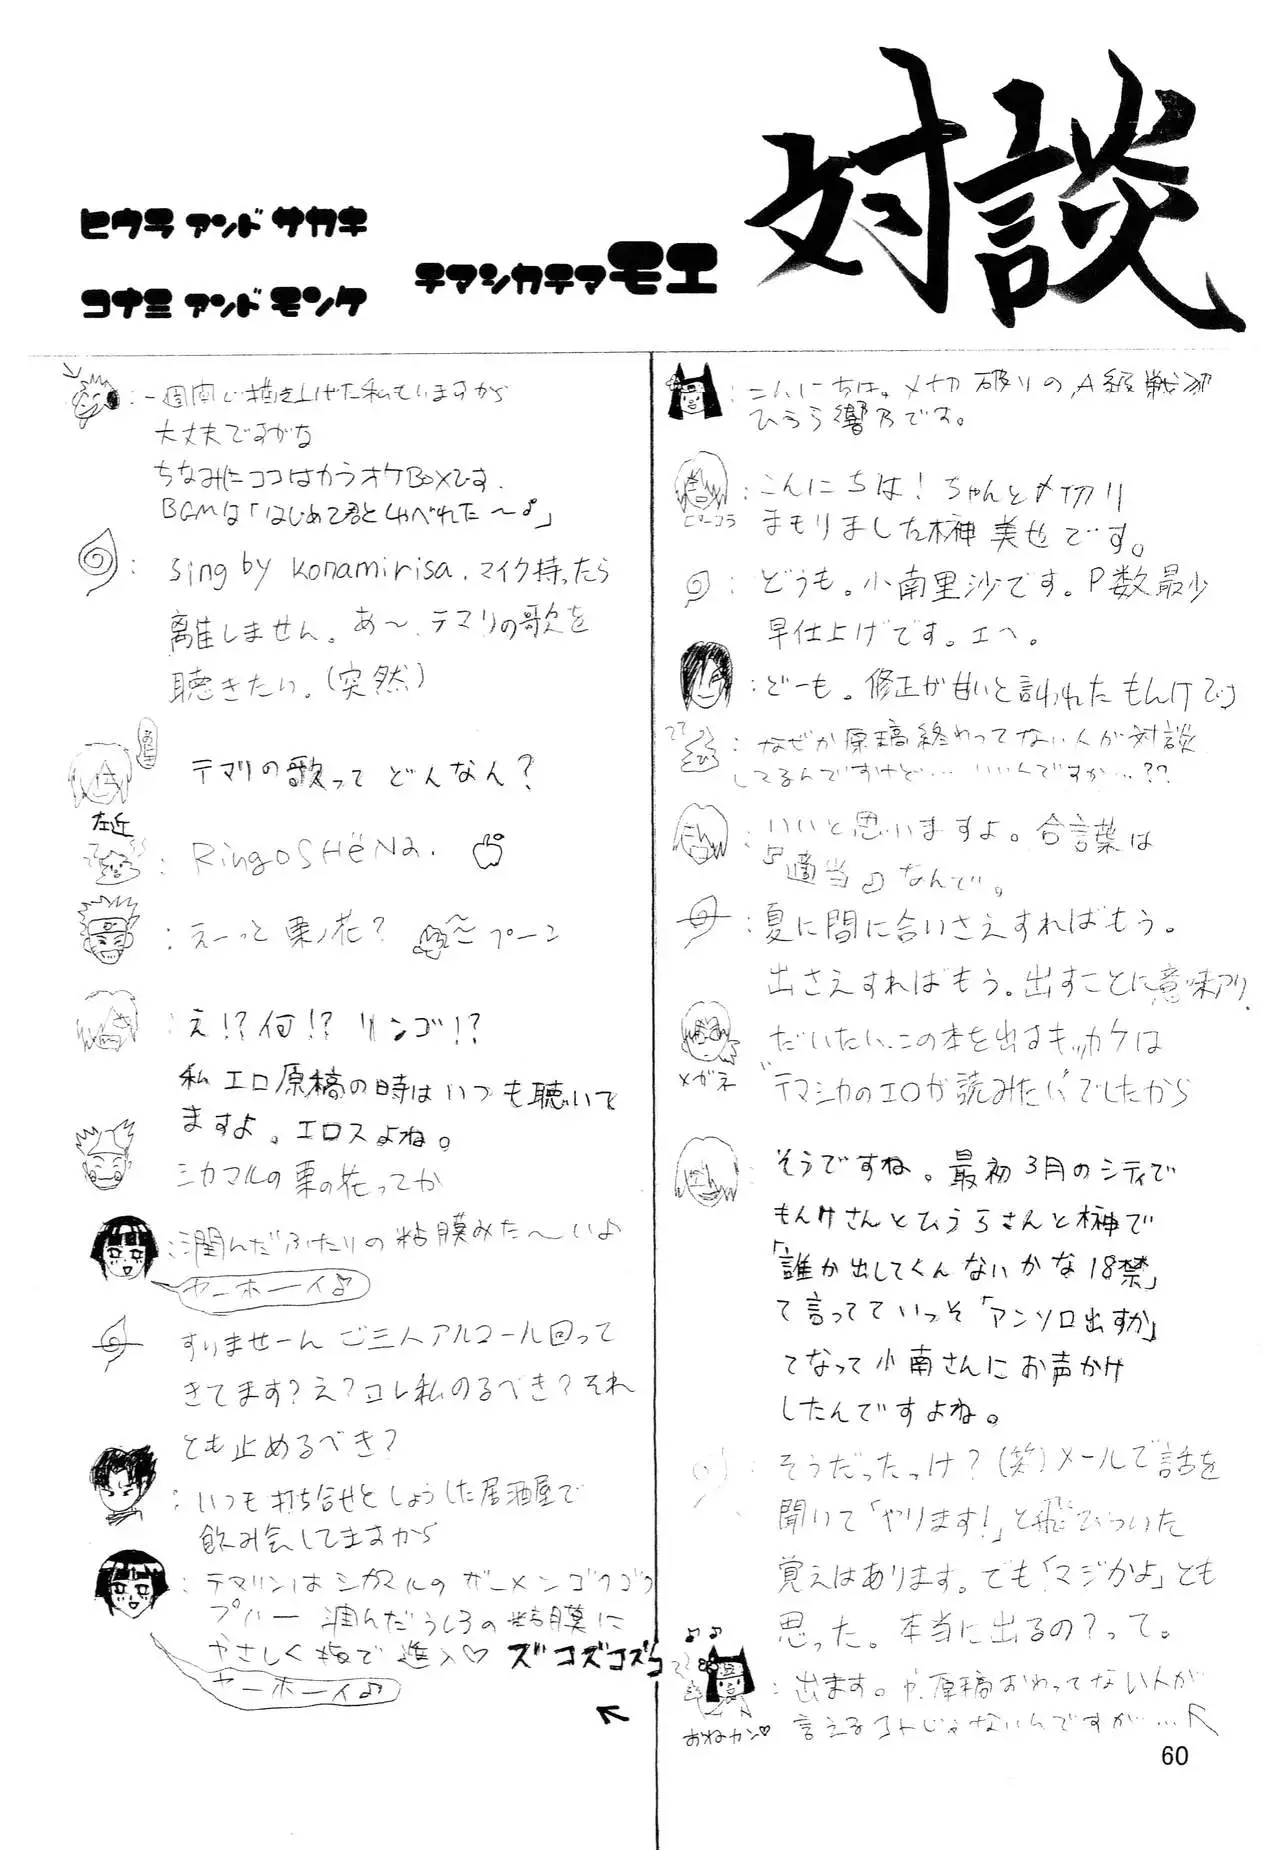 対談
テマシカテマモエ
ヒウラ アンド サカキ
コナミ アンド モンケ
こんにちは。〆切破りのA級戦犯
ひうら響乃です。
ピーコラ
こんにちは!ちゃんと〆切り
まもりました榊 美也です。
どうも。小南里沙です。P数最少
早仕上げです。エヘ。
どーも。修正が甘いと言われたもんけです
なぜか原稿終わってない人が対談
してるんですけど… いいんですか…??
いいと思いますよ。合言葉は
『適当♪』なんで。
夏に間に合いさえすればもう。
出さえすればもう。出すことに意味アリ。
メガネ
だいたい、この本を出すキッカケは
"テマシカのエロが読みたい"でしたから
そうですね。最初3月のシティで
もんけさんとひうらさんと榊で
「誰か出してくんないかな18禁」
て言ってていっそ「アンソロ出すか」
てなって小南さんにお声かけ
したんですよね。
そうだったっけ?(笑)メールで話を
聞いて「やります!」と飛びついた
覚えはあります。でも「マジかよ」とも
思った。本当に出るの?って。
出ます。や、原稿おわってない人が
言えるコトじゃないんですが…
おねカン♡
一週間で描き上げた私ていますから
大丈夫ですがな
ちなみにココはカラオケBoxです.
BGMは「はじめて君としゃべれた〜♪」
sing by konamirisa. マイク持ったら
離しません。あ〜、テマリの歌を
聴きたい。(突然)
テマリの歌って どんなん?
左近
RingoSHëNa.
えーっと栗ノ花? プーン
え!?何!? リンゴ!?
私 エロ原稿の時はいつも聴いて
ますよ。エロスよね。
シカマルの栗の花ってか
潤んだふたりの粘膜みた〜い♪
ヤーホーイ♪
すいませーん ご三人アルコール回って
きてます?え?コレ私のるべき?それ
とも止めるべき?
いつも打ち合せとしょうした居酒屋で
飲み会してますから
テマリンはシカマルの ザーメンゴクゴク
プハー 潤んだうしろの粘膜に
やさしく指で進入♡ズコズコズコ
ヤーホーイ♪
60